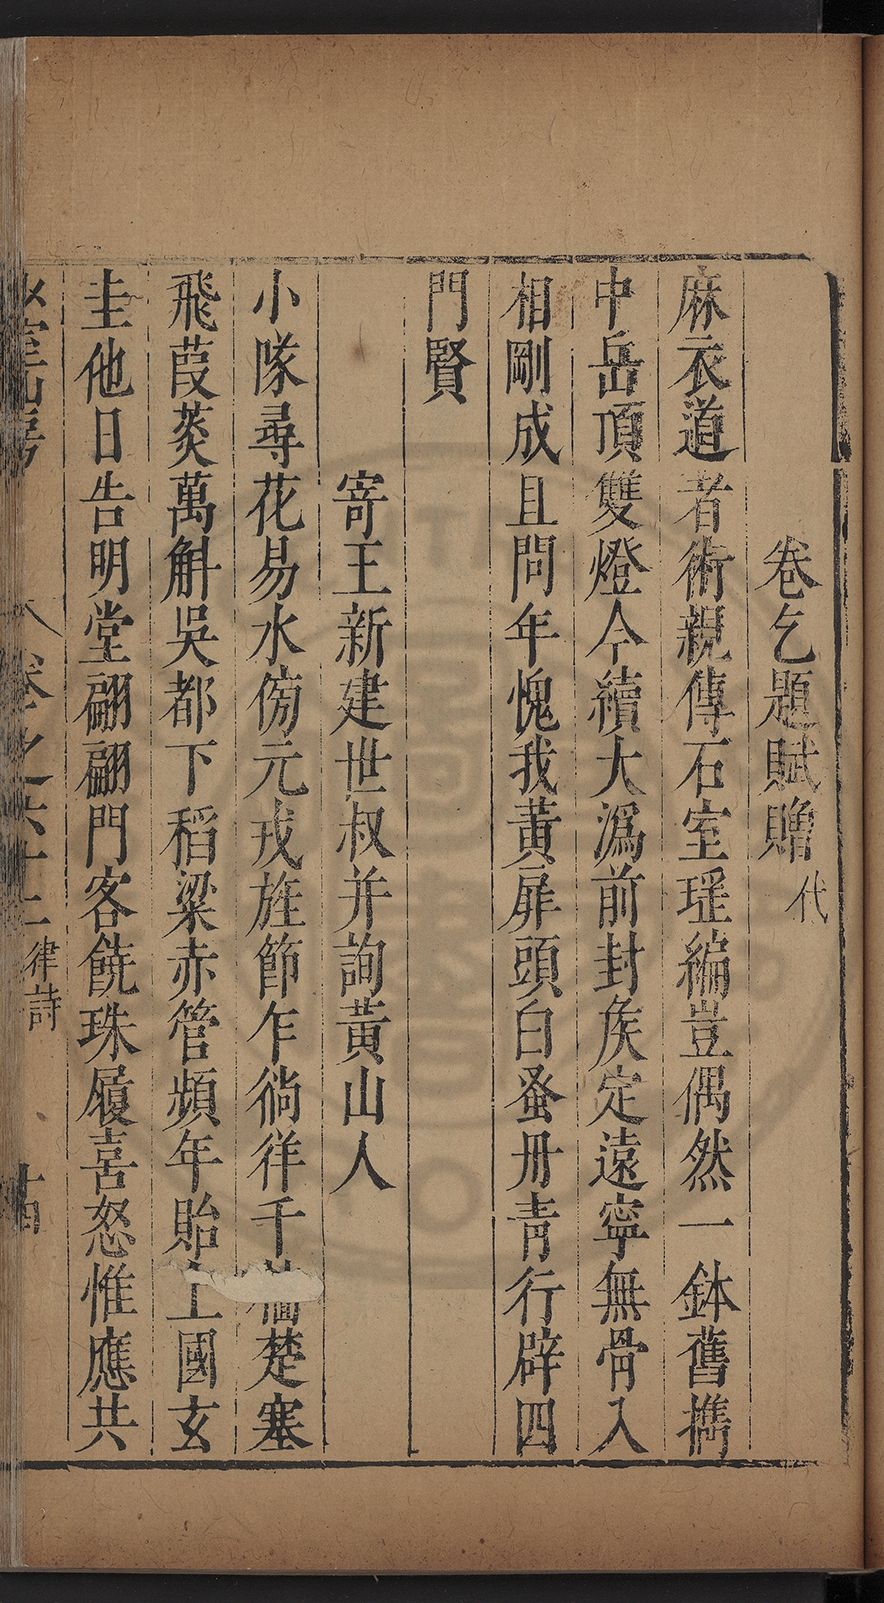 卷乞題賦贈代
麻衣道者術親傳石室瑶編豈偶然一鉢舊擕
中岳頂雙燈今續大潙前封矦定遠寧無骨入
相剛成且問年愧我黃扉頭白蚤丹青行辟四
門賢
寄王新建世叔并詢黃山人
小隊尋花易水傍元戎旌節乍徜徉千楚塞
飛葭菼萬斛吳都下稻粱赤管頻年貽上國玄
圭他日告明堂翩翩門客饒珠履喜怒惟應共
山房 卷之六十二 律詩